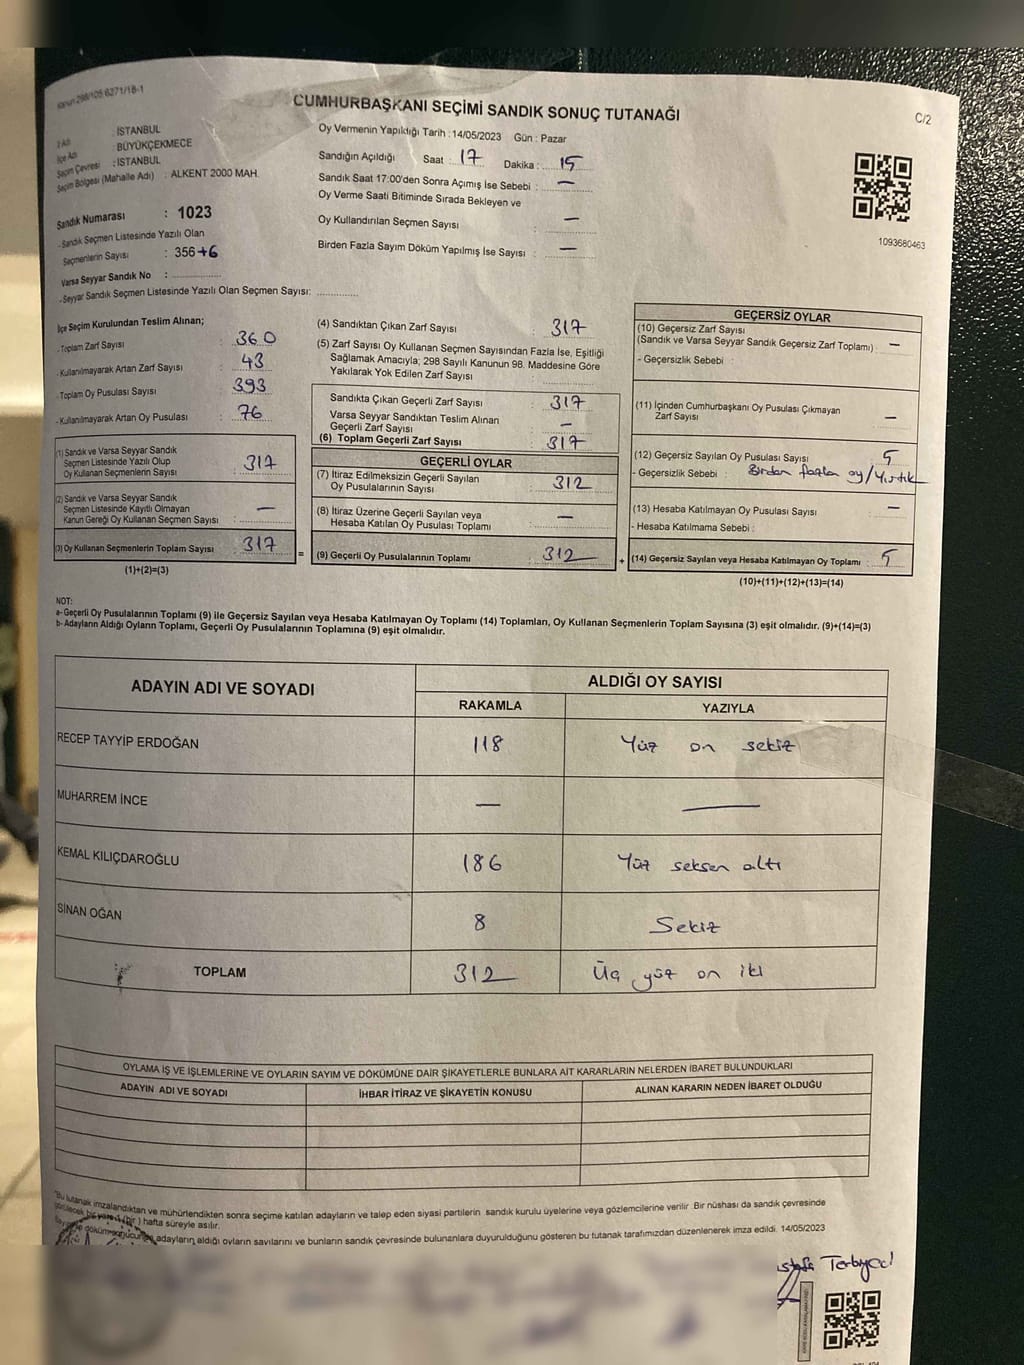 Kanun 298/105 6271/18-1
CUMHURBAŞKANI SEÇİMİ SANDIK SONUÇ TUTANAĞI
C/2
İl Adı : İSTANBUL
İlçe Adı : BÜYÜKÇEKMECE
Seçim Çevresi : İSTANBUL
Seçim Bölgesi (Mahalle Adı) : ALKENT 2000 MAH.
Sandık Numarası : 1023
-Sandık Seçmen Listesinde Yazılı Olan
Seçmenlerin Sayısı : 356+6
Varsa Seyyar Sandık No :
-Seyyar Sandık Seçmen Listesinde Yazılı Olan Seçmen Sayısı:
Oy Vermenin Yapıldığı Tarih : 14/05/2023 Gün : Pazar
Sandığın Açıldığı Saat : 17 Dakika : 15
Sandık Saat 17:00'den Sonra Açımış İse Sebebi : —
Oy Verme Saati Bitiminde Sırada Bekleyen ve
Oy Kullandırılan Seçmen Sayısı : —
Birden Fazla Sayım Döküm Yapılmış İse Sayısı : —
1093680463
İlçe Seçim Kurulundan Teslim Alınan;
-Toplam Zarf Sayısı : 360
-Kullanılmayarak Artan Zarf Sayısı : 43
-Toplam Oy Pusulası Sayısı : 393
-Kullanılmayarak Artan Oy Pusulası : 76
(1) Sandık ve Varsa Seyyar Sandık
Seçmen Listesinde Yazılı Olup
Oy Kullanan Seçmenlerin Sayısı : 317
(2) Sandık ve Varsa Seyyar Sandık
Seçmen Listesinde Kayıtlı Olmayan
Kanun Gereği Oy Kullanan Seçmen Sayısı : —
(3) Oy Kullanan Seçmenlerin Toplam Sayısı : 317
(1)+(2)=(3)
=
(4) Sandıktan Çıkan Zarf Sayısı : 317
(5) Zarf Sayısı Oy Kullanan Seçmen Sayısından Fazla İse, Eşitliği
Sağlamak Amacıyla; 298 Sayılı Kanunun 98. Maddesine Göre
Yakılarak Yok Edilen Zarf Sayısı :
Sandıkta Çıkan Geçerli Zarf Sayısı : 317
Varsa Seyyar Sandıktan Teslim Alınan
Geçerli Zarf Sayısı : —
(6) Toplam Geçerli Zarf Sayısı : 317
GEÇERLİ OYLAR
(7) İtiraz Edilmeksizin Geçerli Sayılan
Oy Pusulalarının Sayısı : 312
(8) İtiraz Üzerine Geçerli Sayılan veya
Hesaba Katılan Oy Pusulası Toplamı : —
(9) Geçerli Oy Pusulalarının Toplamı : 312
+
GEÇERSİZ OYLAR
(10) Geçersiz Zarf Sayısı
(Sandık ve Varsa Seyyar Sandık Geçersiz Zarf Toplamı) : —
- Geçersizlik Sebebi :
(11) İçinden Cumhurbaşkanı Oy Pusulası Çıkmayan
Zarf Sayısı : —
(12) Geçersiz Sayılan Oy Pusulası Sayısı : 5
- Geçersizlik Sebebi : Birden fazla oy/Yırtık
(13) Hesaba Katılmayan Oy Pusulası Sayısı : —
- Hesaba Katılmama Sebebi :
(14) Geçersiz Sayılan veya Hesaba Katılmayan Oy Toplamı : 5
(10)+(11)+(12)+(13)=(14)
NOT:
a- Geçerli Oy Pusulalarının Toplamı (9) ile Geçersiz Sayılan veya Hesaba Katılmayan Oy Toplamı (14) Toplamları, Oy Kullanan Seçmenlerin Toplam Sayısına (3) eşit olmalıdır. (9)+(14)=(3)
b- Adayların Aldığı Oyların Toplamı, Geçerli Oy Pusulalarının Toplamına (9) eşit olmalıdır.
ADAYIN ADI VE SOYADI
ALDIĞI OY SAYISI
RAKAMLA YAZIYLA
RECEP TAYYİP ERDOĞAN 118 Yüz on sekiz
MUHARREM İNCE — —
KEMAL KILIÇDAROĞLU 186 Yüz seksen altı
SİNAN OĞAN 8 Sekiz
TOPLAM 312 Üç yüz on iki
OYLAMA İŞ VE İŞLEMLERİNE VE OYLARIN SAYIM VE DÖKÜMÜNE DAİR ŞİKAYETLERLE BUNLARA AİT KARARLARIN NELERDEN İBARET BULUNDUKLARI
ADAYIN ADI VE SOYADI İHBAR İTİRAZ VE ŞİKAYETİN KONUSU ALINAN KARARIN NEDEN İBARET OLDUĞU
"Bu tutanak imzalandıktan ve mühürlendikten sonra seçime katılan adayların ve talep eden siyasi partilerin sandık kurulu üyelerine veya gözlemcilerine verilir. Bir nüshası da sandık çevresinde
(bir) hafta süreyle asılır.
adayların aldığı oyların sayılarını ve bunların sandık çevresinde bulunanlara duyurulduğunu gösteren bu tutanak tarafımızdan düzenlenerek imza edildi. 14/05/2023